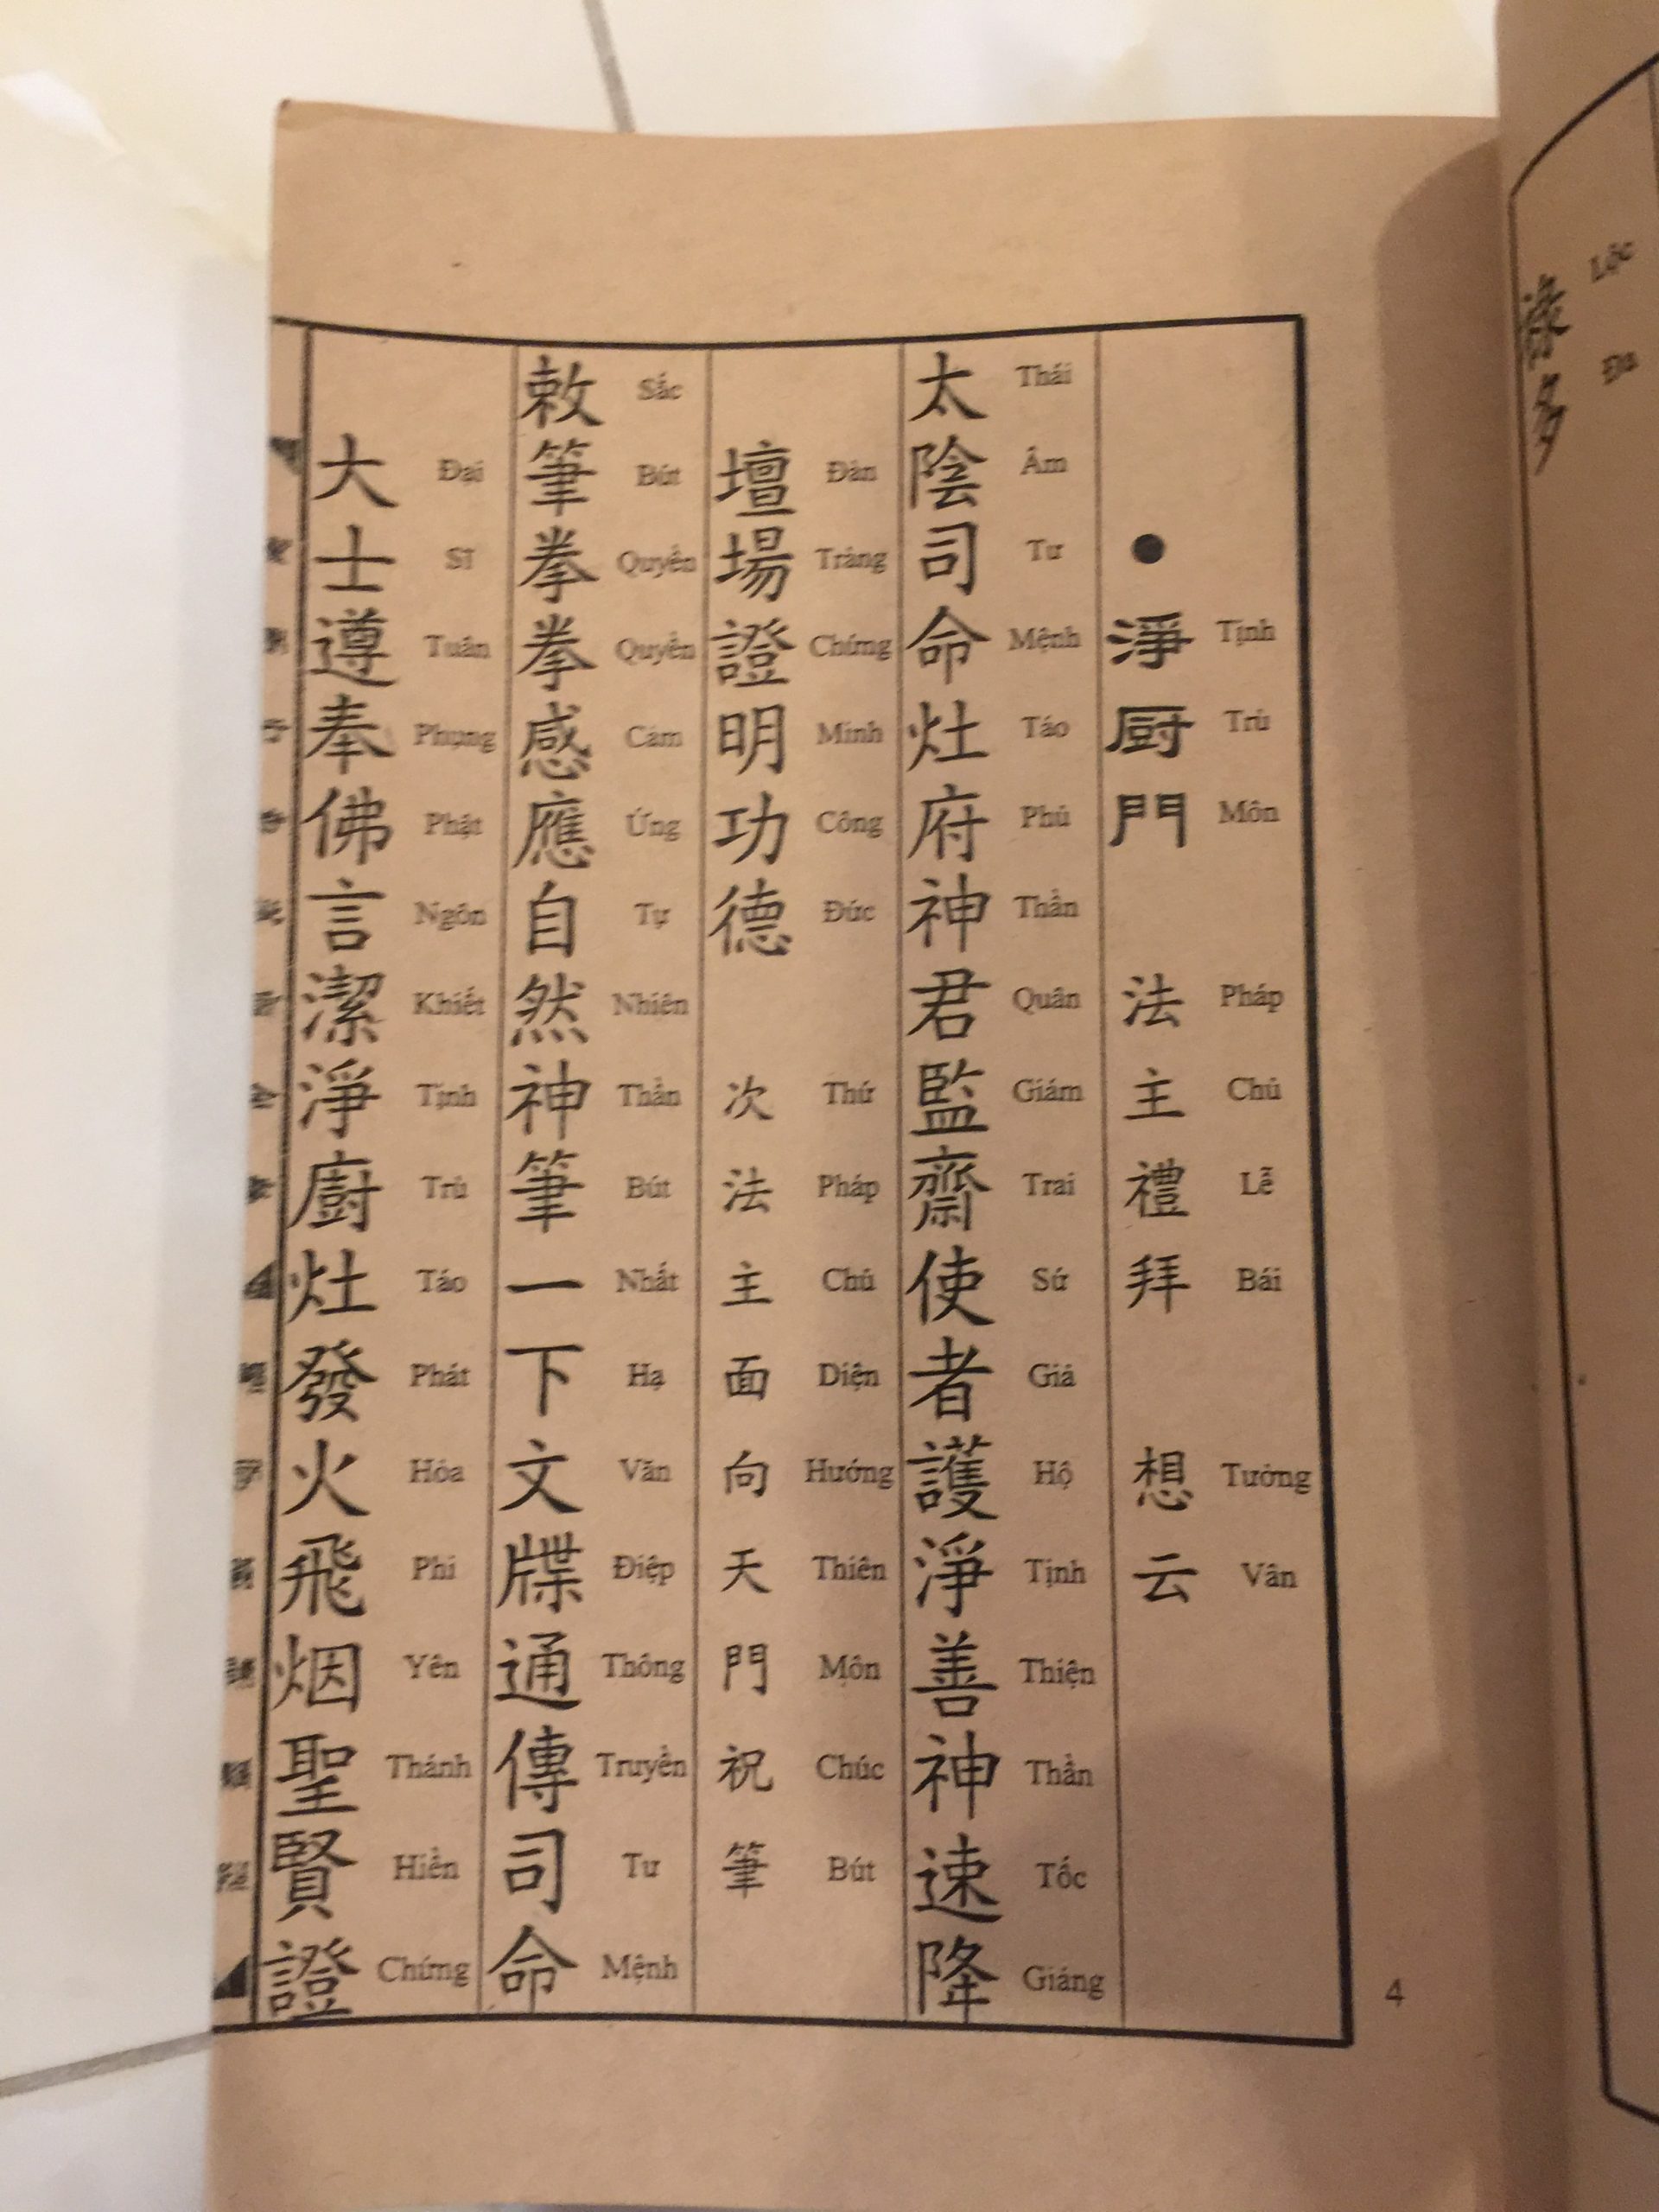 ● 淨厨門 法主禮拜 想云
Tịnh Trù Môn Pháp Chủ Lễ Bái Tưởng Vân
太陰司命灶府神君監齋使者護淨善神速降
Thái Âm Tư Mệnh Táo Phủ Thần Quân Giám Trai Sứ Giả Hộ Tịnh Thiện Thần Tốc Giáng
壇場證明功德 次法主面向天門祝筆
Đàn Tràng Chứng Minh Công Đức Thứ Pháp Chủ Diện Hướng Thiên Môn Chúc Bút
敕筆拳拳感應自然神筆一下文牒通傳司命
Sắc Bút Quyền Quyền Cảm Ứng Tự Nhiên Thần Bút Nhất Hạ Văn Điệp Thông Truyền Tư Mệnh
大士遵奉佛言潔淨廚灶發火飛烟聖賢證
Đại Sĩ Tuân Phụng Phật Ngôn Khiết Tịnh Trù Táo Phát Hỏa Phi Yên Thánh Hiền Chứng
4
多
Lộc Đa